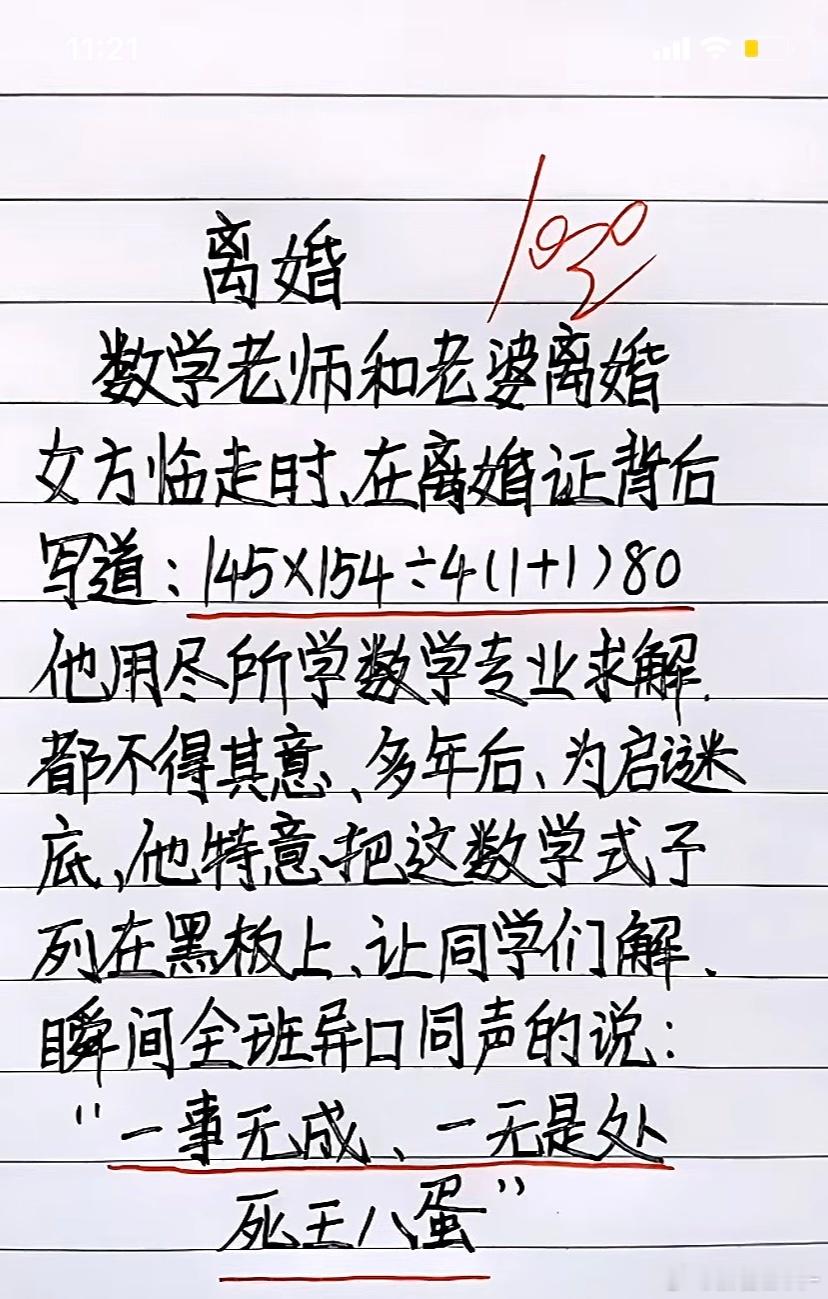 11:21
离婚
100
数学老师和老婆离婚
女方临走时、在离婚证背后
写道:145×154÷4(1+1)80
他用尽所学数学专业求解、
都不得其意、多年后、为启谜
底、他特意把这数学式子
列在黑板上、让同学们解、
瞬间全班异口同声的说:
“一事无成、一无是处
死王八蛋”